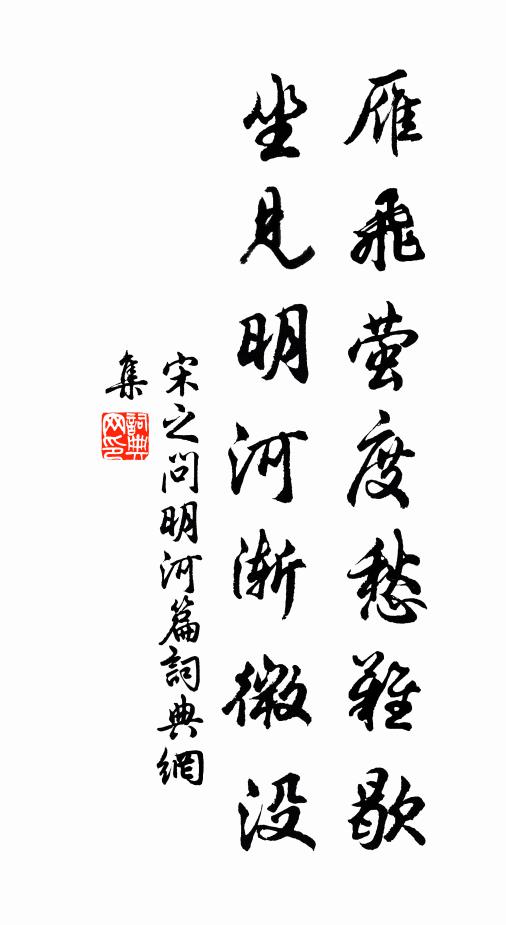 雁飛萤度愁難歇
坐見明河漸微没
宋之问明河篇詞典網
集
詞典
网印